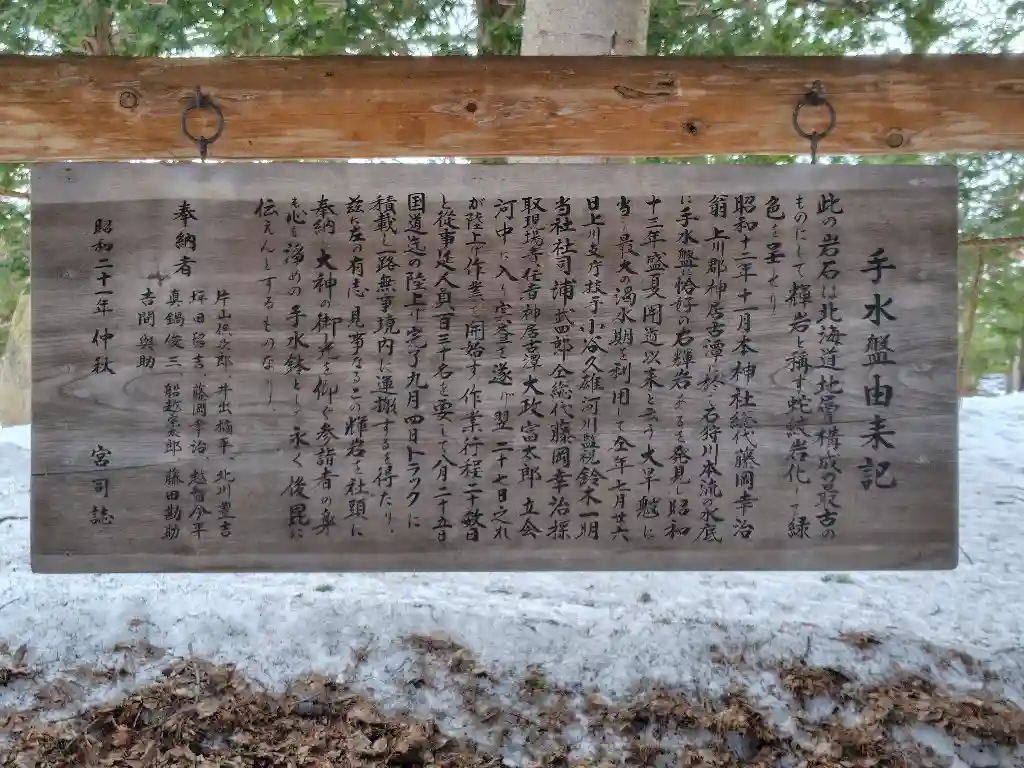 手水盤由来記
此の岩石は北海道地層構成の最古の
ものにして輝岩と稱す蛇紋岩化して緑
色を呈せり
昭和十二年十一月本神社総代藤岡幸治
翁上川郡神居古潭に於て石狩川本流の水底
に手水盤に恰好の石輝岩あるを発見し昭和
十三年盛夏開道以来と云う大旱魃に
当り最大の渇水期を利用して仝年七月廿六
日上川支庁技手小谷久雄河川監視鈴木一明
当社社司浦武四郎仝総代藤岡幸治採
取現場寺住者神居古潭大政富太郎立会
河中に入り実査を遂げ翌二十七日之れ
が陸上げ作業を開始す作業行程二十数日
と從事延人員百三十名を要して八月二十五日
国道迄の陸上げ完了九月四日トラックに
積載し一路無事境内に運搬するを得たり、
茲に左の有志、見事なるこの輝岩を社頭に
奉納し大神の御光を仰ぐ参詣者の身
も心も清めの手水鉢として永く後昆に
伝えんとするものなり、
奉納者
片山 次郎 井出 平 北川豊吉
坪田留吉 藤岡幸治 越智今平
真鍋俊三 船越 太郎 藤田勘助
吉間與助
昭和二十一年仲秋 宮司誌